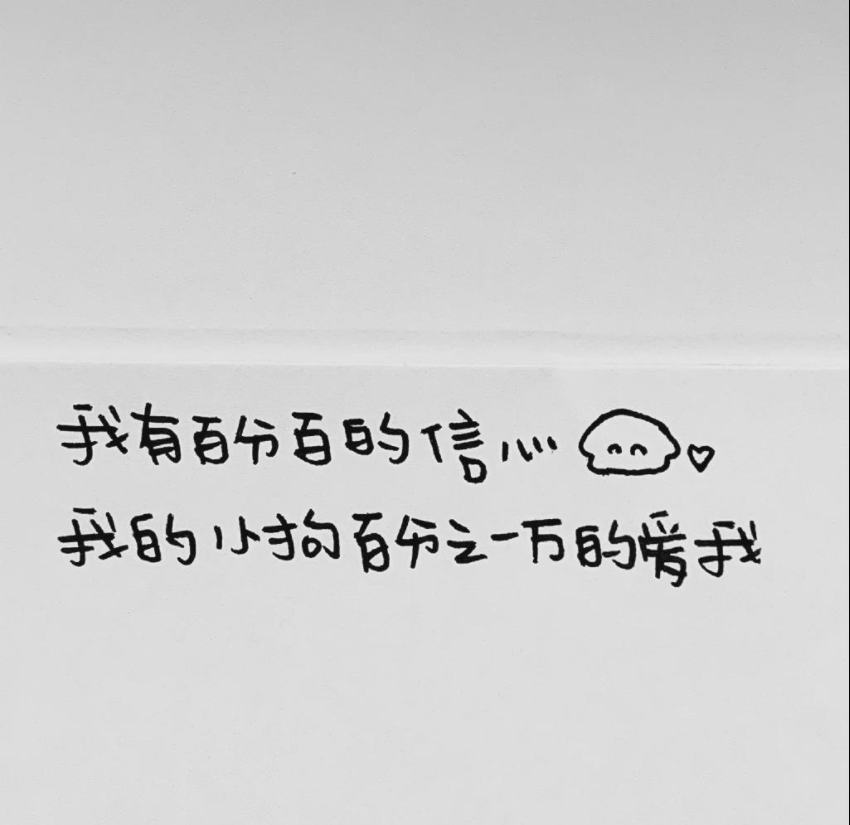 我有百分百的信心
我的小狗百分之一万的爱我